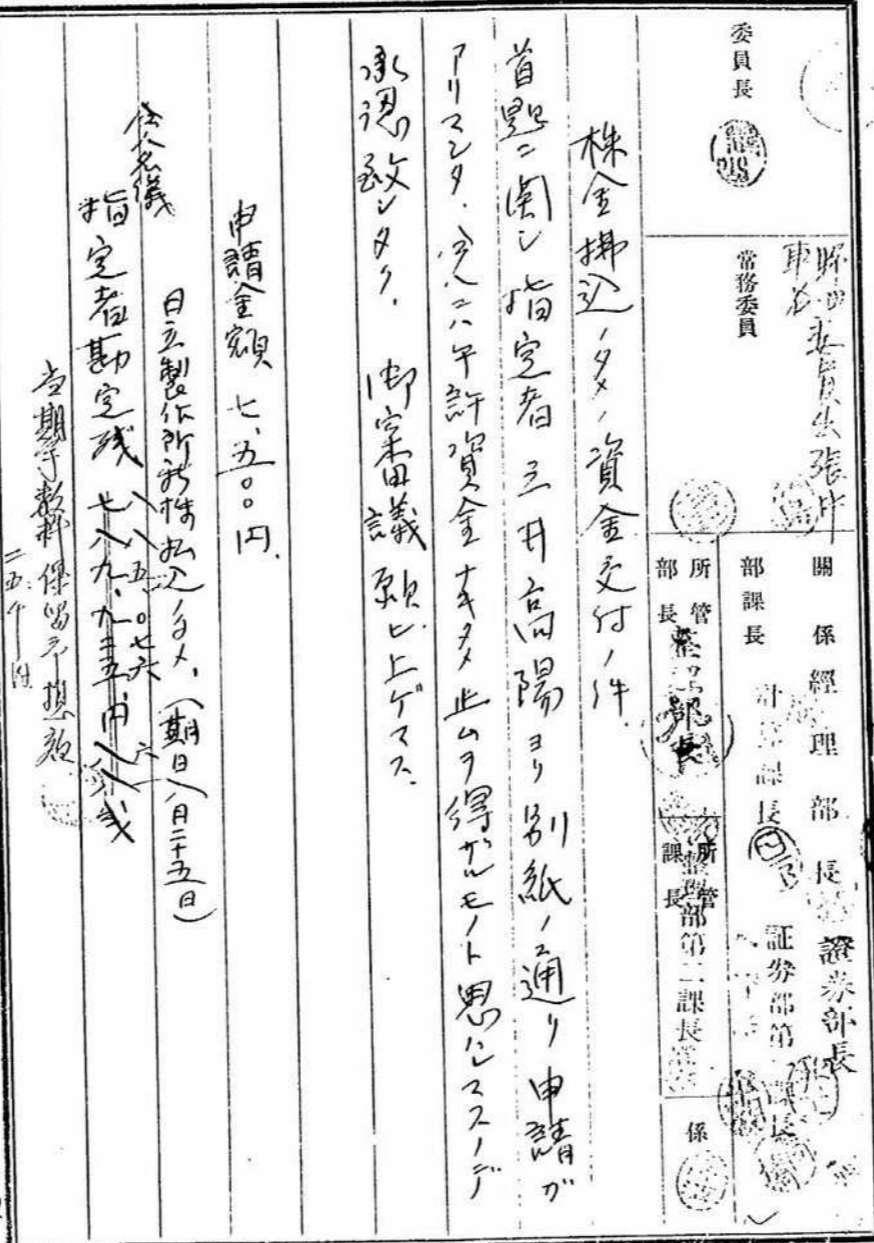 委員長
常務委員
委員出張中
關係經理部長
證券部長
部課長
計算課長
証券部第一課長
所管部長
整理部長
所管課長
整理部第二課長
係
株金拂込ノタメノ資金交付ノ件.
首題ニ関シ指定者三井高陽ヨリ別紙ノ通リ申請ガ
アリマシタ.尚六ハ午許資金ナキタメ止ムヲ得ザルモノト思ハレマスノデ
承認致シタク.御審議願ヒ上ゲマス.
申請金額 七、五〇〇円.
日立製作所新株払込ノタメ、(期日八月二十五日)
仝人名儀
指定者勘定残 七八九、九二五円八八銭
八八五.〇七六
当期手数料保留予想額
二五千円